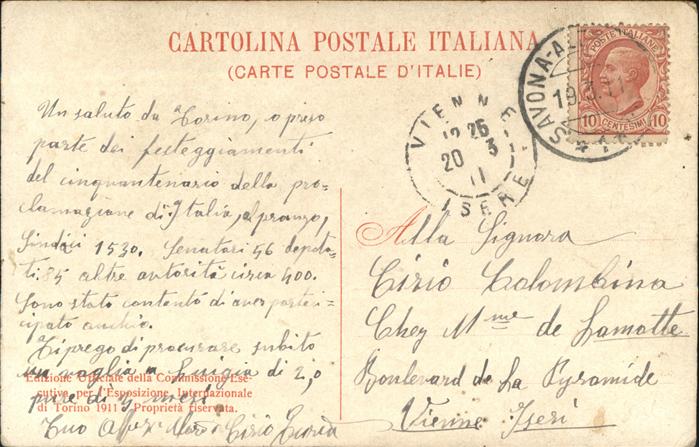 CARTOLINA POSTALE ITALIANA
(CARTE POSTALE D'ITALIE)
POSTE ITALIANE
10 CENTESIMI 10
SAVONA-A
19.3.11
VIENNE
12 25
20 3
11
ISERE
Un saluto da Torino, o preso
parte dei festeggiamenti
del cinquantenario della pro-
clamazione di Italia, al pranzo,
Sindaci 1530. Senatori 56 deputa-
ti 85 altre autorità circa 400.
Sono stato contento di aver parteci-
cipato anchio.
Ti prego di procurare subito
un vaglia a Luigia di 2,0
Edizione Ufficiale della Commissione Ese-
cutiva per l'Esposizione Internazionale
di Torino 1911 - Proprietà riservata.
Tuo Cirio
Alla Signora
Cirio Colombina
Chez Mme de Lamotte
Boulevard de La Pyramide
Vienne Iseri